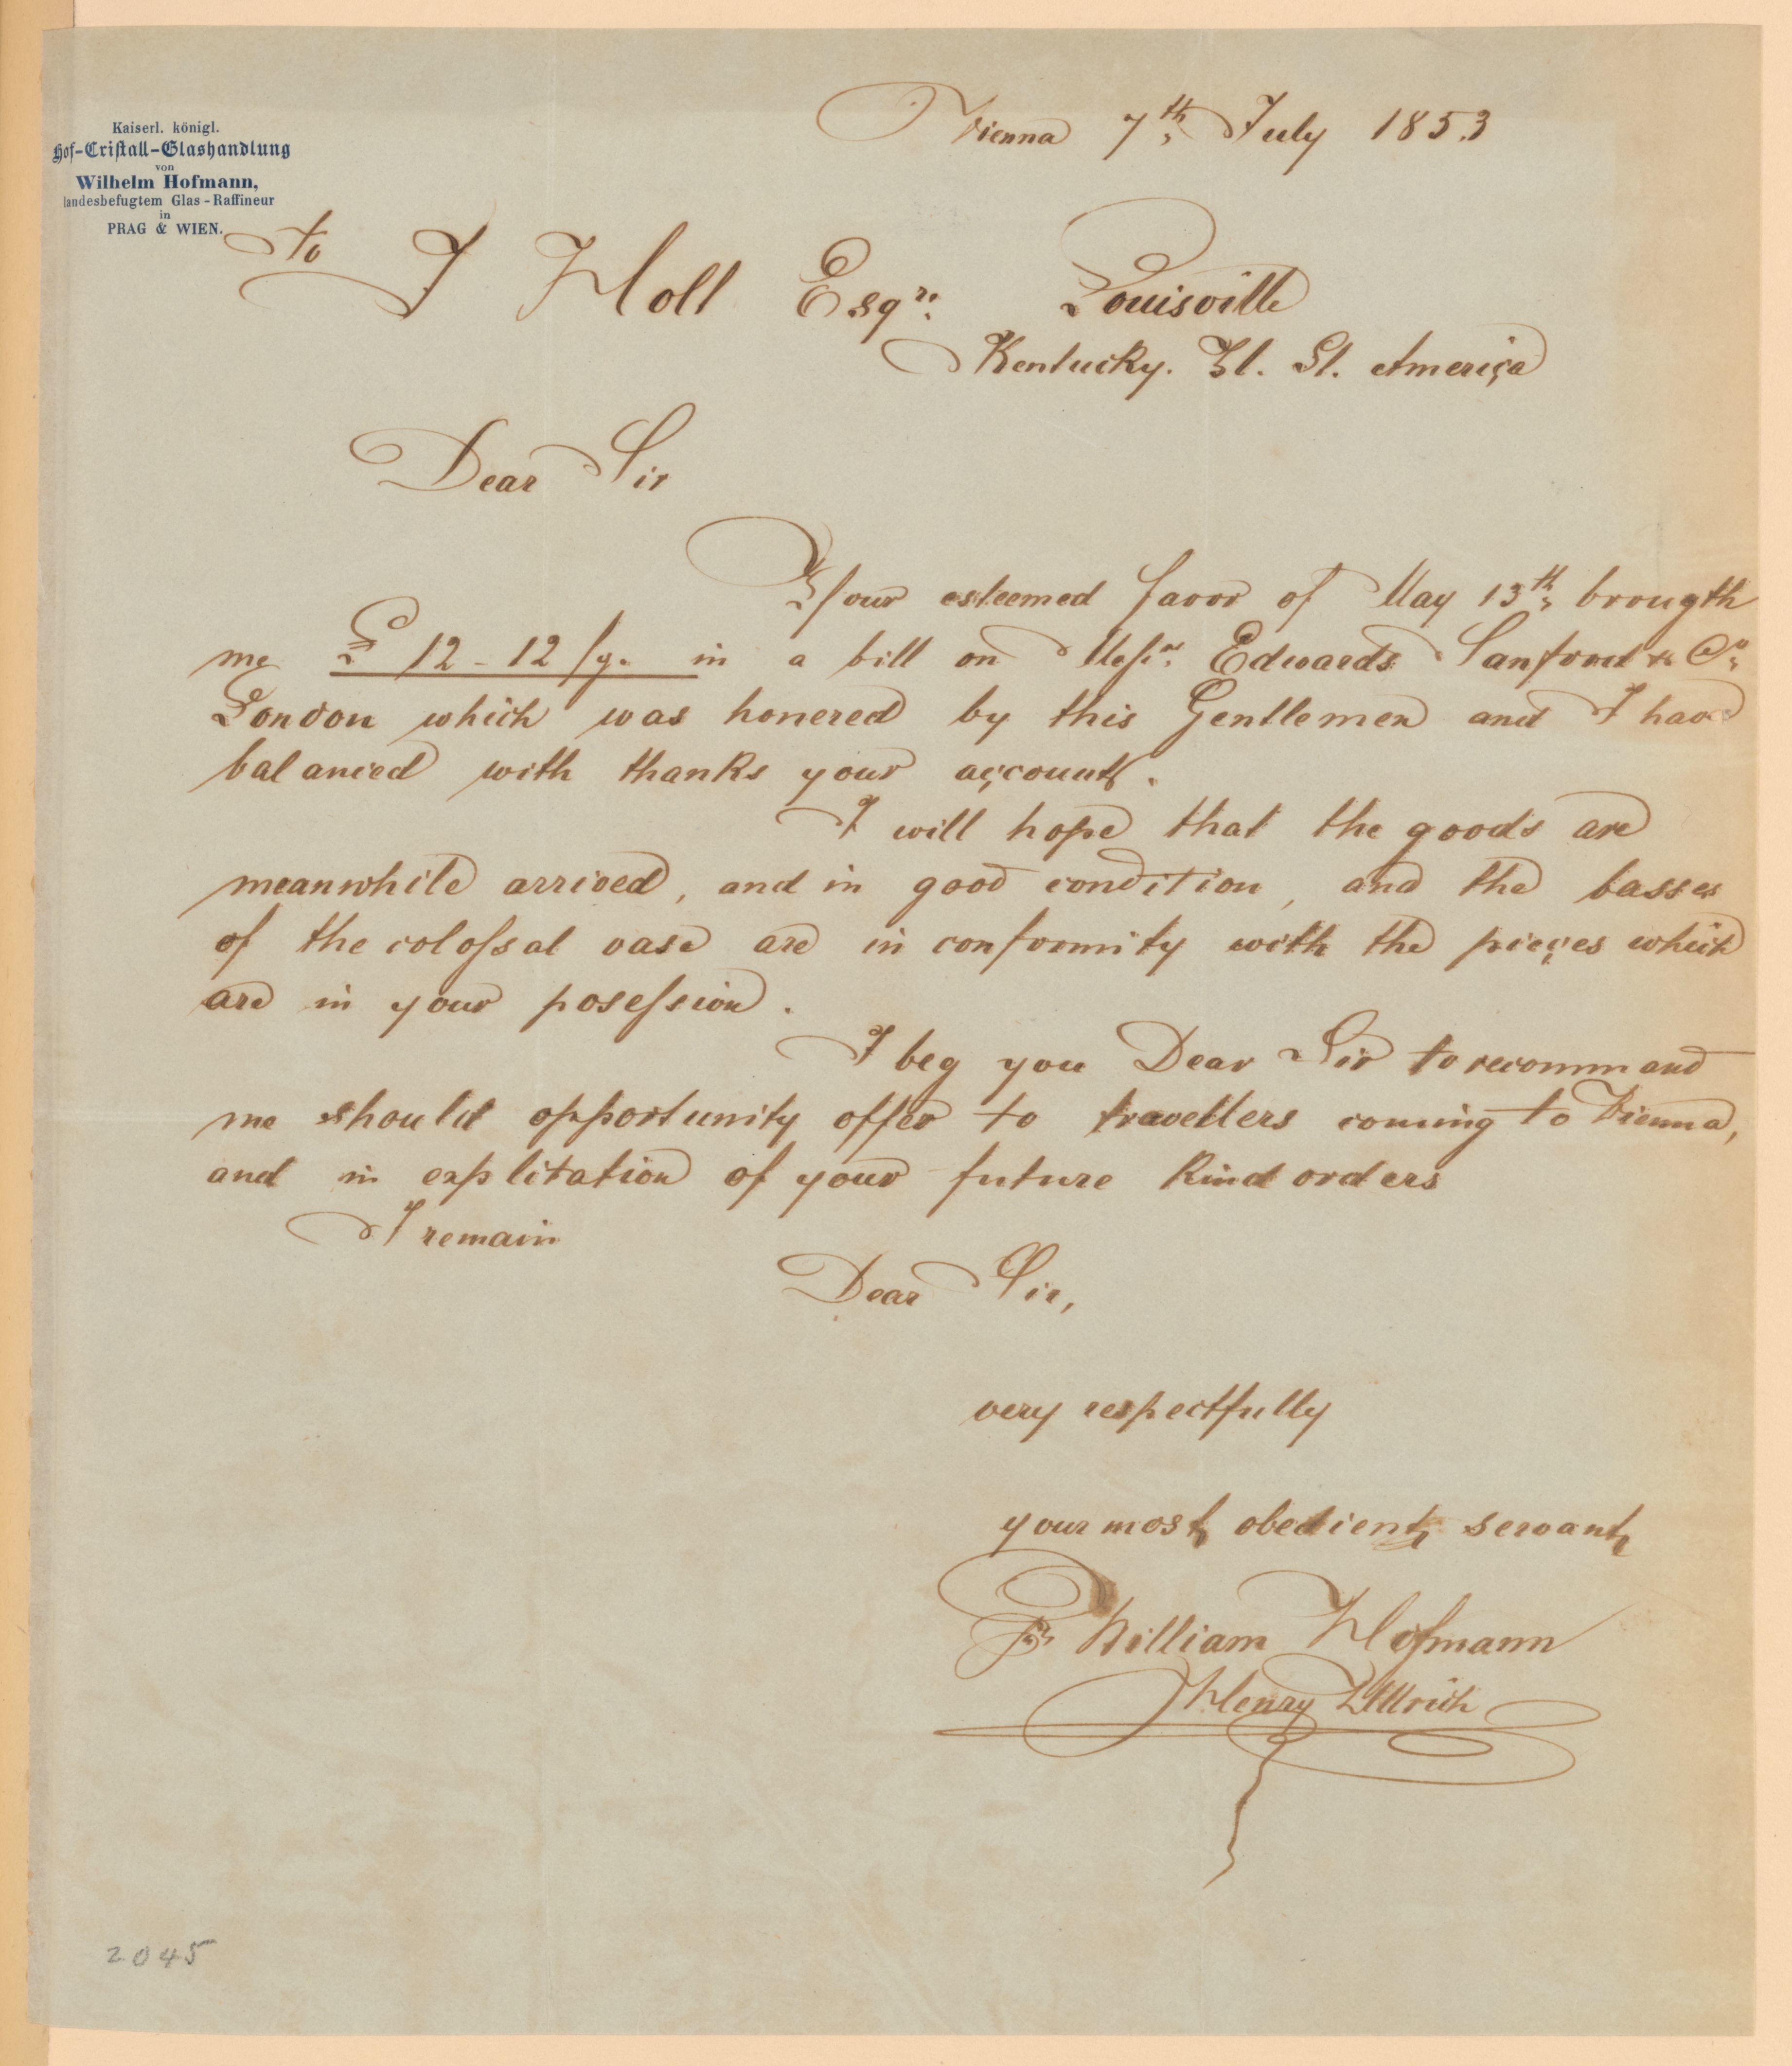 Kaiserl. königl.
Hof-Cristall-Glashandlung
von
Wilhelm Hofmann,
landesbefugtem Glas-Raffineur
in
PRAG & WIEN.
Vienna 7th July 1853
To J Holt Esqre. Louisville
Kentucky. U. St. America
Dear Sir
Your esteemed favor of May 13th brougth
me £ 12 - 12 /y. in a bill on Messrs. Edwards Sanford & Co.
London which was honered by this Gentlemen and I have
balanced with thanks your account.
I will hope that the goods are
meanwhile arrived, and in good condition, and the basses
of the colossal vase are in conformity with the pieces which
are in your posession.
I beg you Dear Sir to recommand
me should opportunity offer to travellers coming to Vienna,
and in explitation of your future kind orders
I remain
Dear Sir,
very respectfully
your most obedient servant
Pr William Hofmann
Henry Ullrich
2045